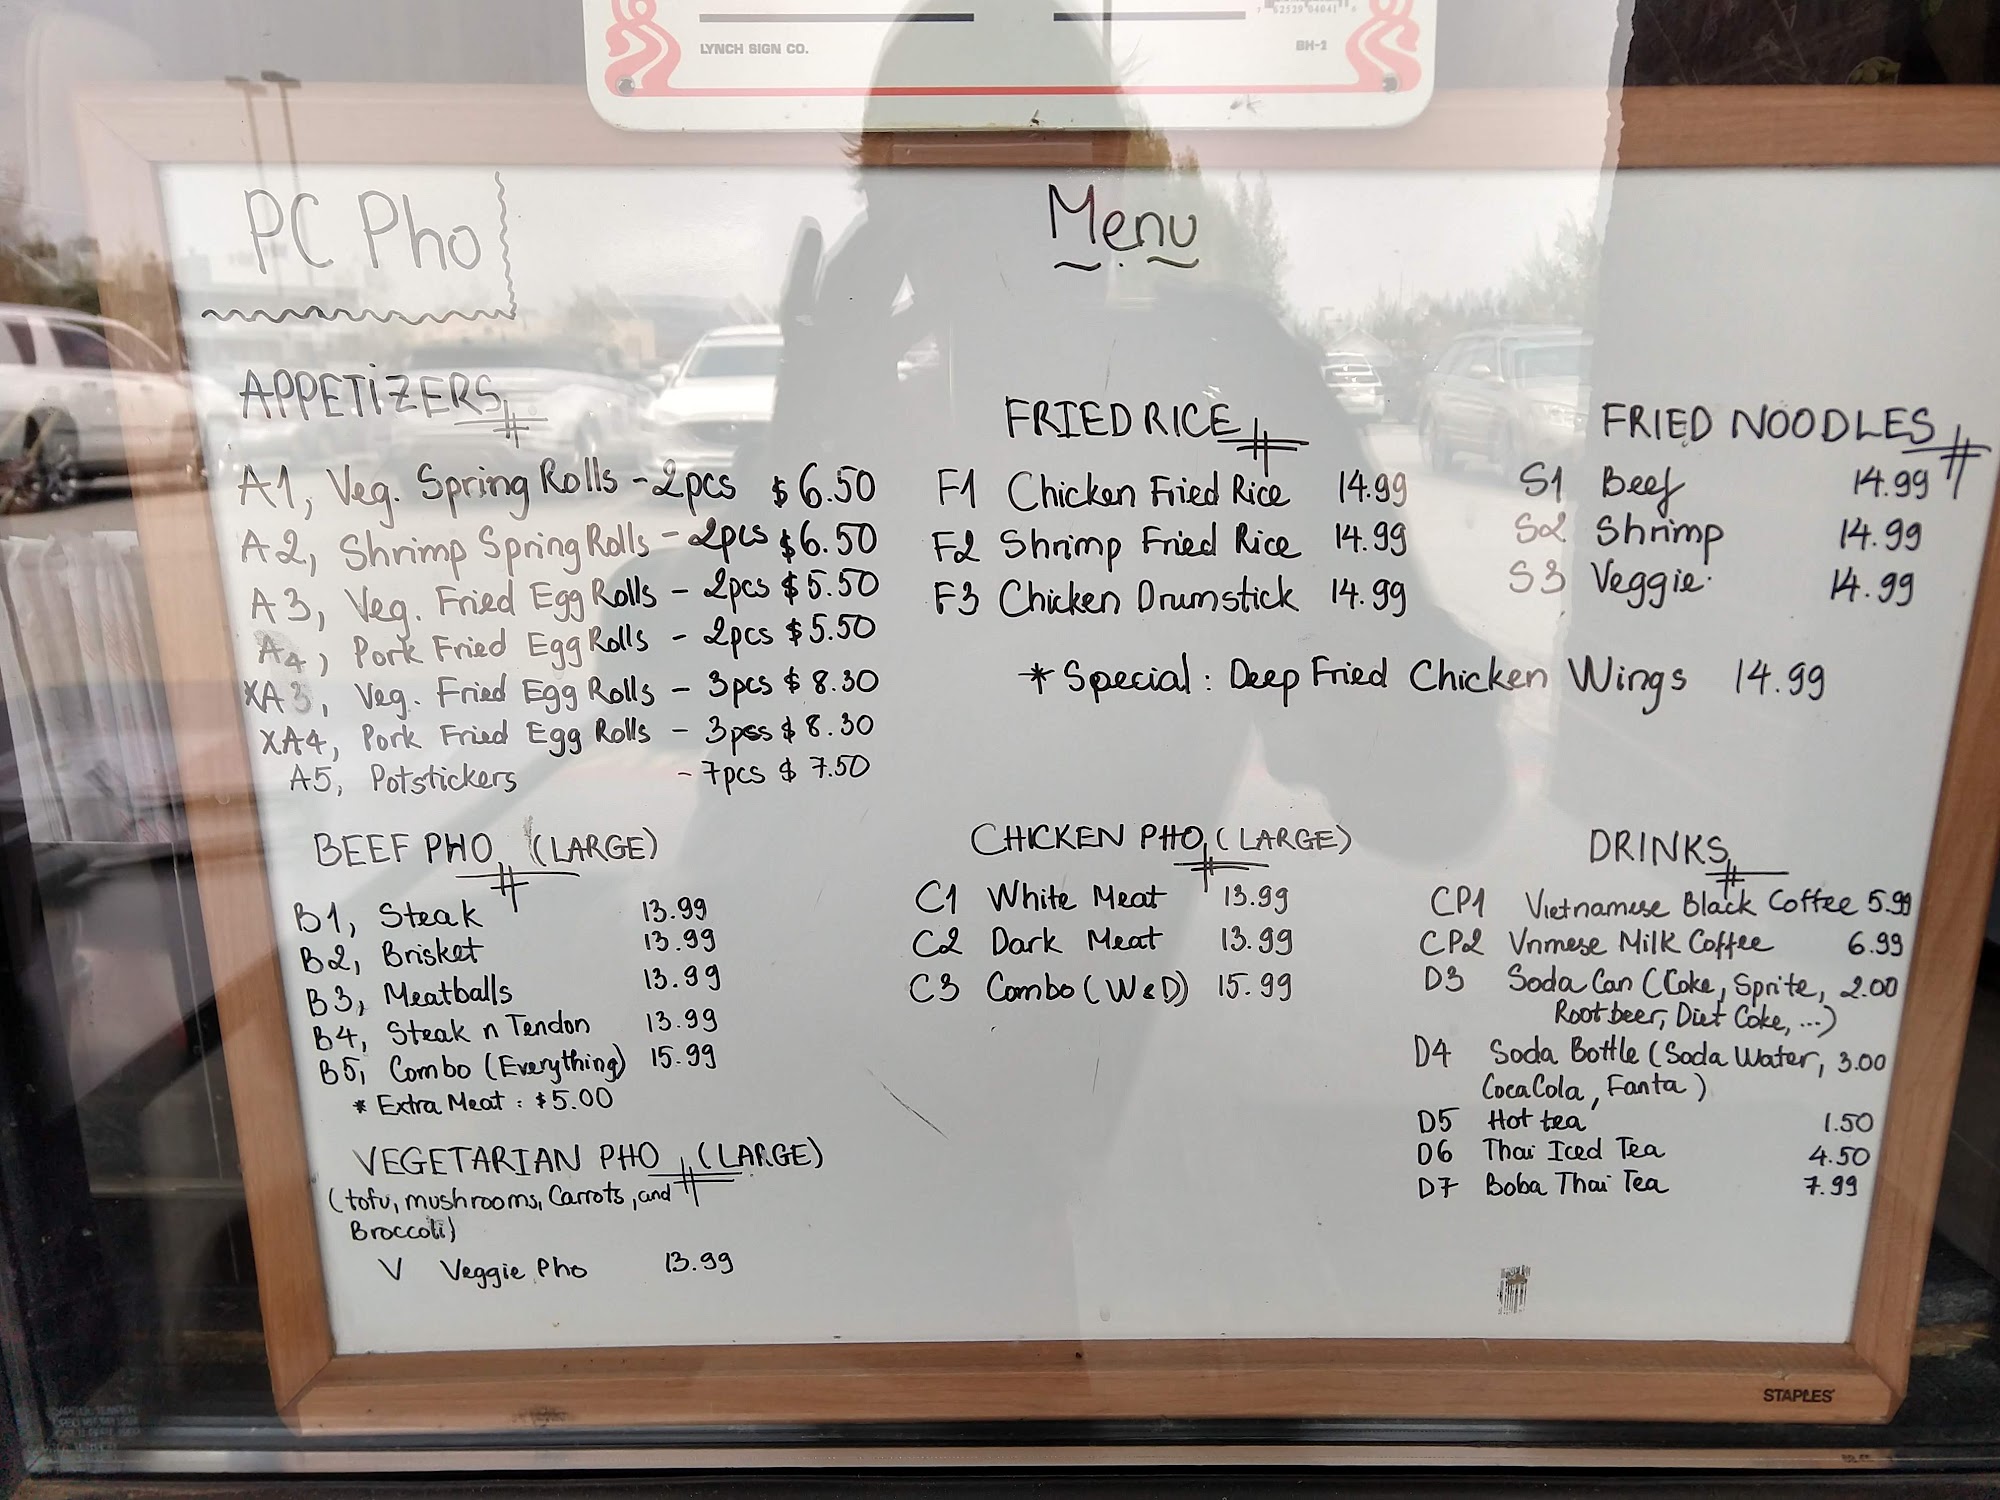 LYNCH SIGN CO.
BH-1
PC Pho
Menu
APPETiZERS
A1, Veg. Spring Rolls - 2pcs $6.50
A2, Shrimp Spring Rolls - 2pcs $6.50
A3, Veg. Fried Egg Rolls - 2pcs $5.50
A4, Pork Fried Egg Rolls - 2pcs $5.50
XA3, Veg. Fried Egg Rolls - 3pcs $8.30
XA4, Pork Fried Egg Rolls - 3pss $8.30
A5, Potstickers - 7pcs $7.50
FRIED RICE
F1 Chicken Fried Rice 14.99
F2 Shrimp Fried Rice 14.99
F3 Chicken Drumstick 14.99
FRIED NOODLES
S1 Beef 14.99
S2 Shrimp 14.99
S3 Veggie 14.99
* Special : Deep Fried Chicken Wings 14.99
BEEF PHO (LARGE)
B1, Steak 13.99
B2, Brisket 13.99
B3, Meatballs 13.99
B4, Steak n Tendon 13.99
B5, Combo (Everything) 15.99
* Extra Meat : $5.00
VEGETARIAN PHO (LARGE)
(tofu, mushrooms, Carrots, and
Broccoli)
V Veggie Pho 13.99
CHICKEN PHO (LARGE)
C1 White Meat 13.99
C2 Dark Meat 13.99
C3 Combo (W & D) 15.99
DRINKS
CP1 Vietnamese Black Coffee 5.99
CP2 Vnmese Milk Coffee 6.99
D3 Soda Can (Coke, Sprite, 2.00
Rootbeer, Diet Coke, ...)
D4 Soda Bottle (Soda Water, 3.00
CocaCola, Fanta)
D5 Hot tea 1.50
D6 Thai Iced Tea 4.50
D7 Boba Thai Tea 7.99
STAPLES